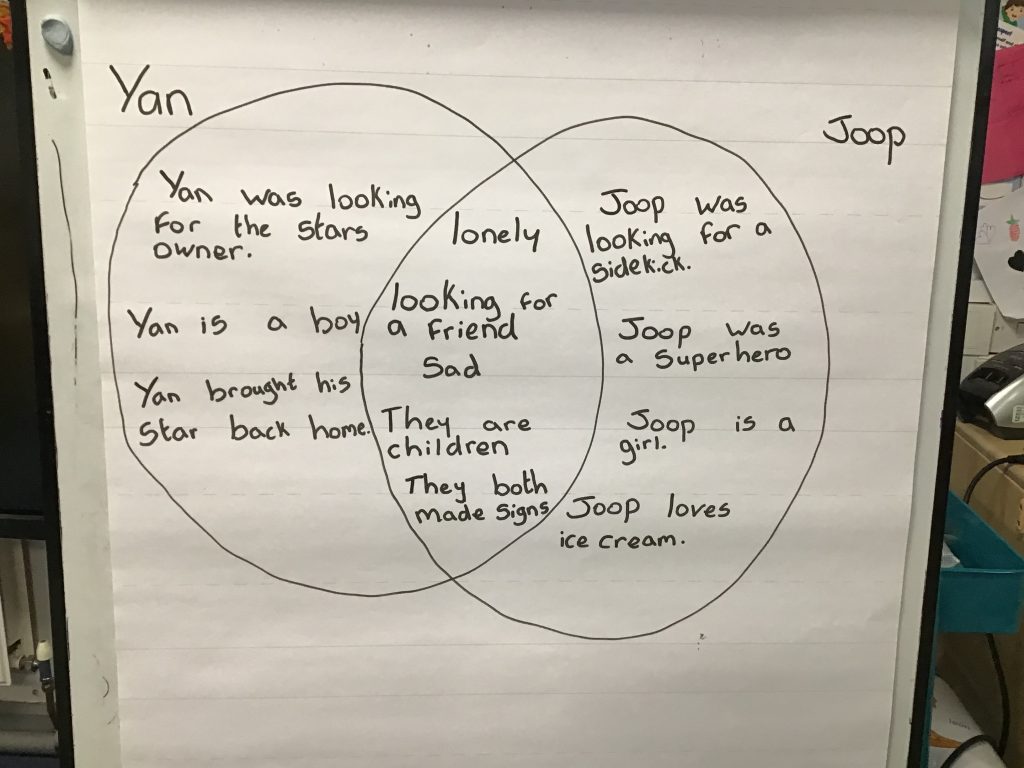 Yan
Joop
Yan was looking
for the stars
owner.
Yan is a boy
Yan brought his
Star back home.
lonely
looking for
a friend
Sad
They are
children
They both
made signs
Joop was
looking for a
sidekick.
Joop was
a Superhero
Joop is a
girl.
Joop loves
ice cream.